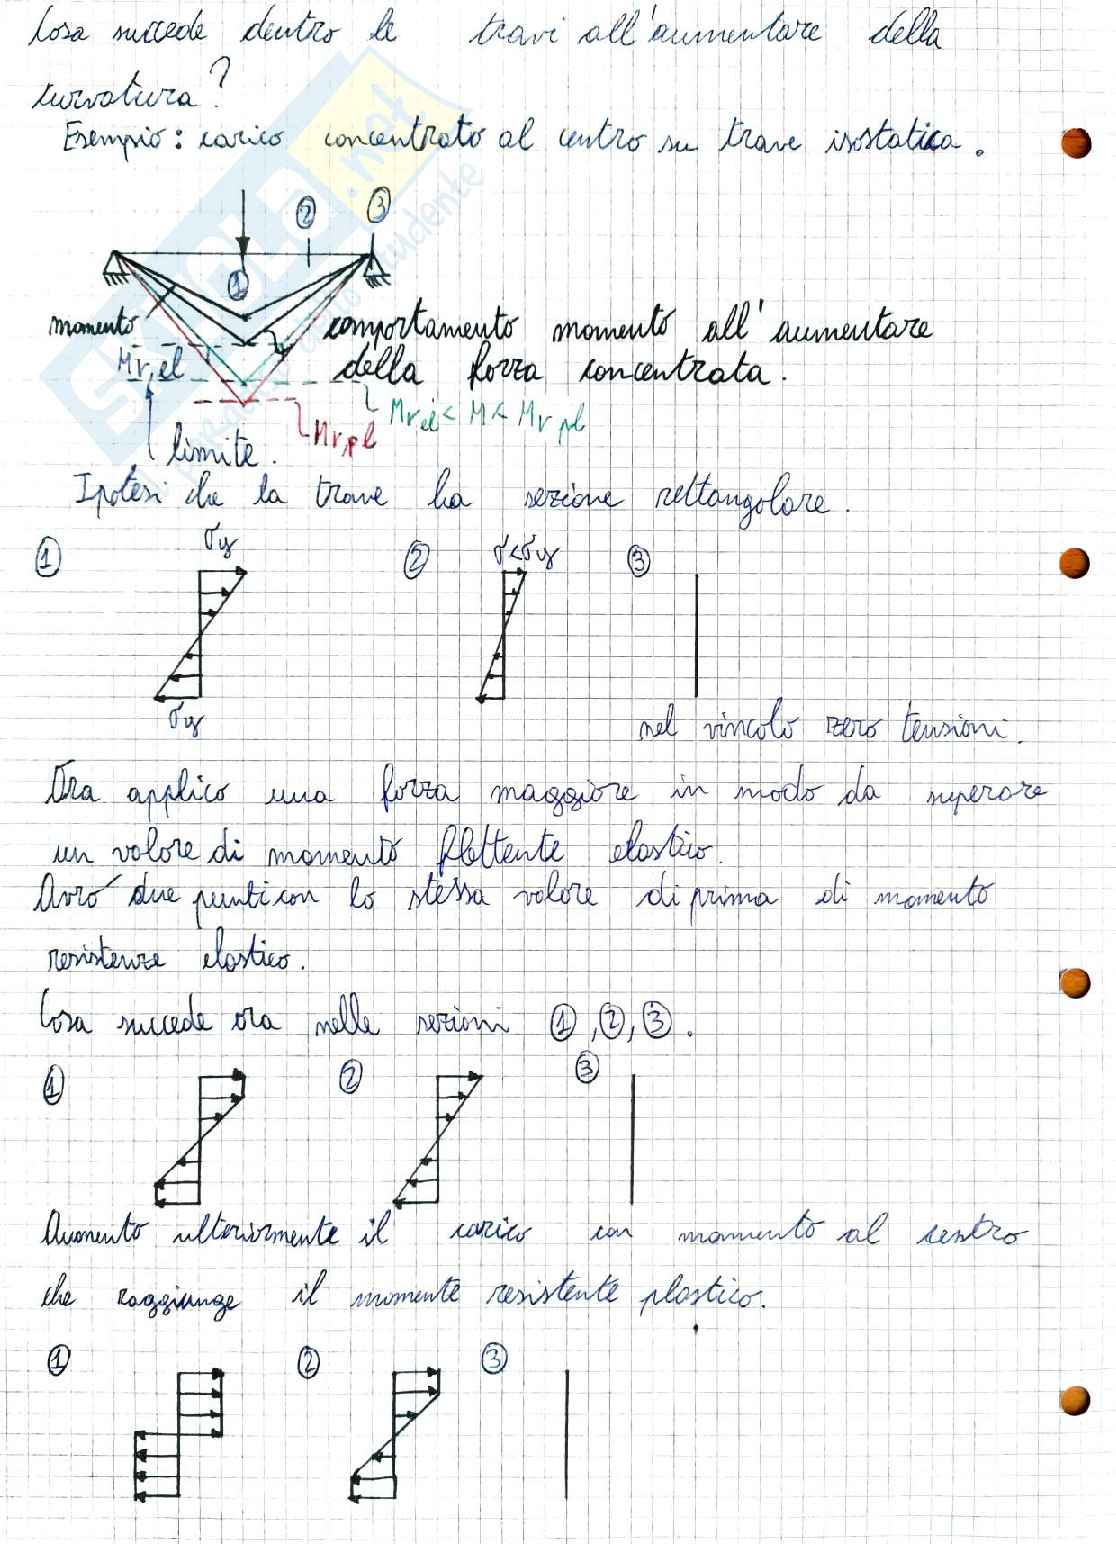 Cosa succede dentro le travi all'aumentare della
curvatura?
Esempio: carico concentrato al centro su trave isostatica.
② ③
①
momento comportamento momento all'aumentare
Mr,el della forza concentrata.
Mr,el < M < Mr,pl
Mr,pl
limite.
Ipotesi che la trave ha sezione rettangolare.
① σy ② σ<σy ③
σy nel vincolo zero tensioni.
Ora applico una forza maggiore in modo da superare
un valore di momento flettente elastico.
Avrò due punti con lo stessa valore di prima di momento
resistenze elastico.
Cosa succede ora nelle sezioni ①,②,③.
① ② ③
Aumento ulteriormente il carico con momento al centro
che raggiunge il momente resistente plastico.
① ② ③